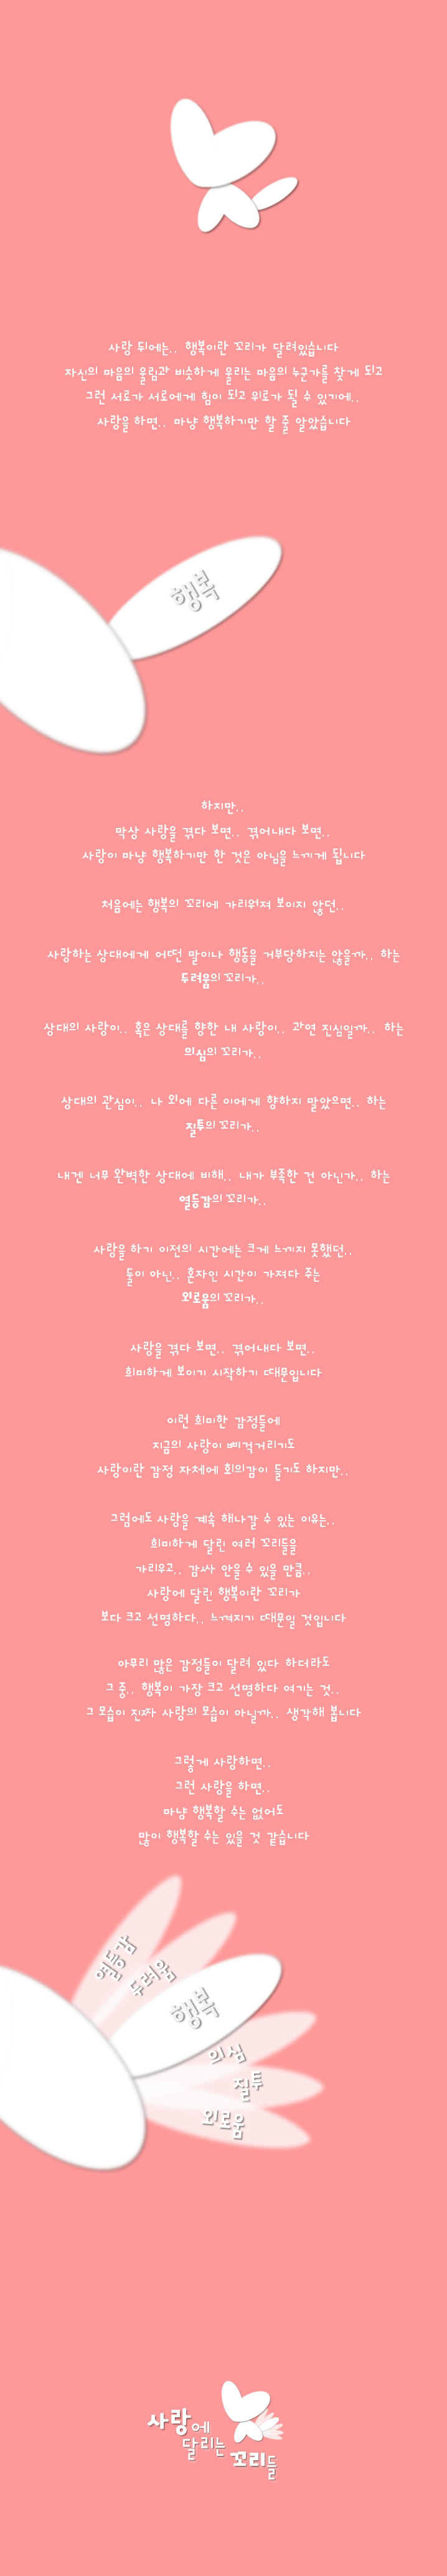 사랑 뒤에는.. 행복이란 꼬리가 달려있습니다
자신의 마음의 울림과 비슷하게 울리는 마음의 누군가를 찾게 되고
그런 서로가 서로에게 힘이 되고 위로가 될 수 있기에..
사랑을 하면.. 마냥 행복하기만 할 줄 알았습니다
행복
하지만..
막상 사랑을 겪다 보면.. 겪어내다 보면..
사랑이 마냥 행복하기만 한 것은 아님을 느끼게 됩니다
처음에는 행복의 꼬리에 가리워져 보이지 않던..
사랑하는 상대에게 어떤 말이나 행동을 거부당하지는 않을까.. 하는
두려움의 꼬리가..
상대의 사랑이.. 혹은 상대를 향한 내 사랑이.. 과연 진심일까.. 하는
의심의 꼬리가..
상대의 관심이.. 나 외에 다른 이에게 향하지 말았으면.. 하는
질투의 꼬리가..
내겐 너무 완벽한 상대에 비해.. 내가 부족한 건 아닌가.. 하는
열등감의 꼬리가..
사랑을 하기 이전의 시간에는 크게 느끼지 못했던..
둘이 아닌.. 혼자인 시간이 가져다 주는
외로움의 꼬리가..
사랑을 겪다 보면.. 겪어내다 보면..
희미하게 보이기 시작하기 때문입니다
이런 희미한 감정들에
지금의 사랑이 삐걱거리기도
사랑이란 감정 자체에 회의감이 들기도 하지만..
그럼에도 사랑을 계속 해나갈 수 있는 이유는..
희미하게 달린 여러 꼬리들을
가리우고.. 감싸 안을 수 있을 만큼..
사랑에 달린 행복이란 꼬리가
보다 크고 선명하다.. 느껴지기 때문일 것입니다
아무리 많은 감정들이 달려 있다 하더라도
그 중.. 행복이 가장 크고 선명하다 여기는 것..
그 모습이 진짜 사랑의 모습이 아닐까.. 생각해 봅니다
그렇게 사랑하면..
그런 사랑을 하면..
마냥 행복할 수는 없어도
많이 행복할 수는 있을 것 같습니다
열등감
두려움
행복
의심
질투
외로움
사랑에
달리는
꼬리들